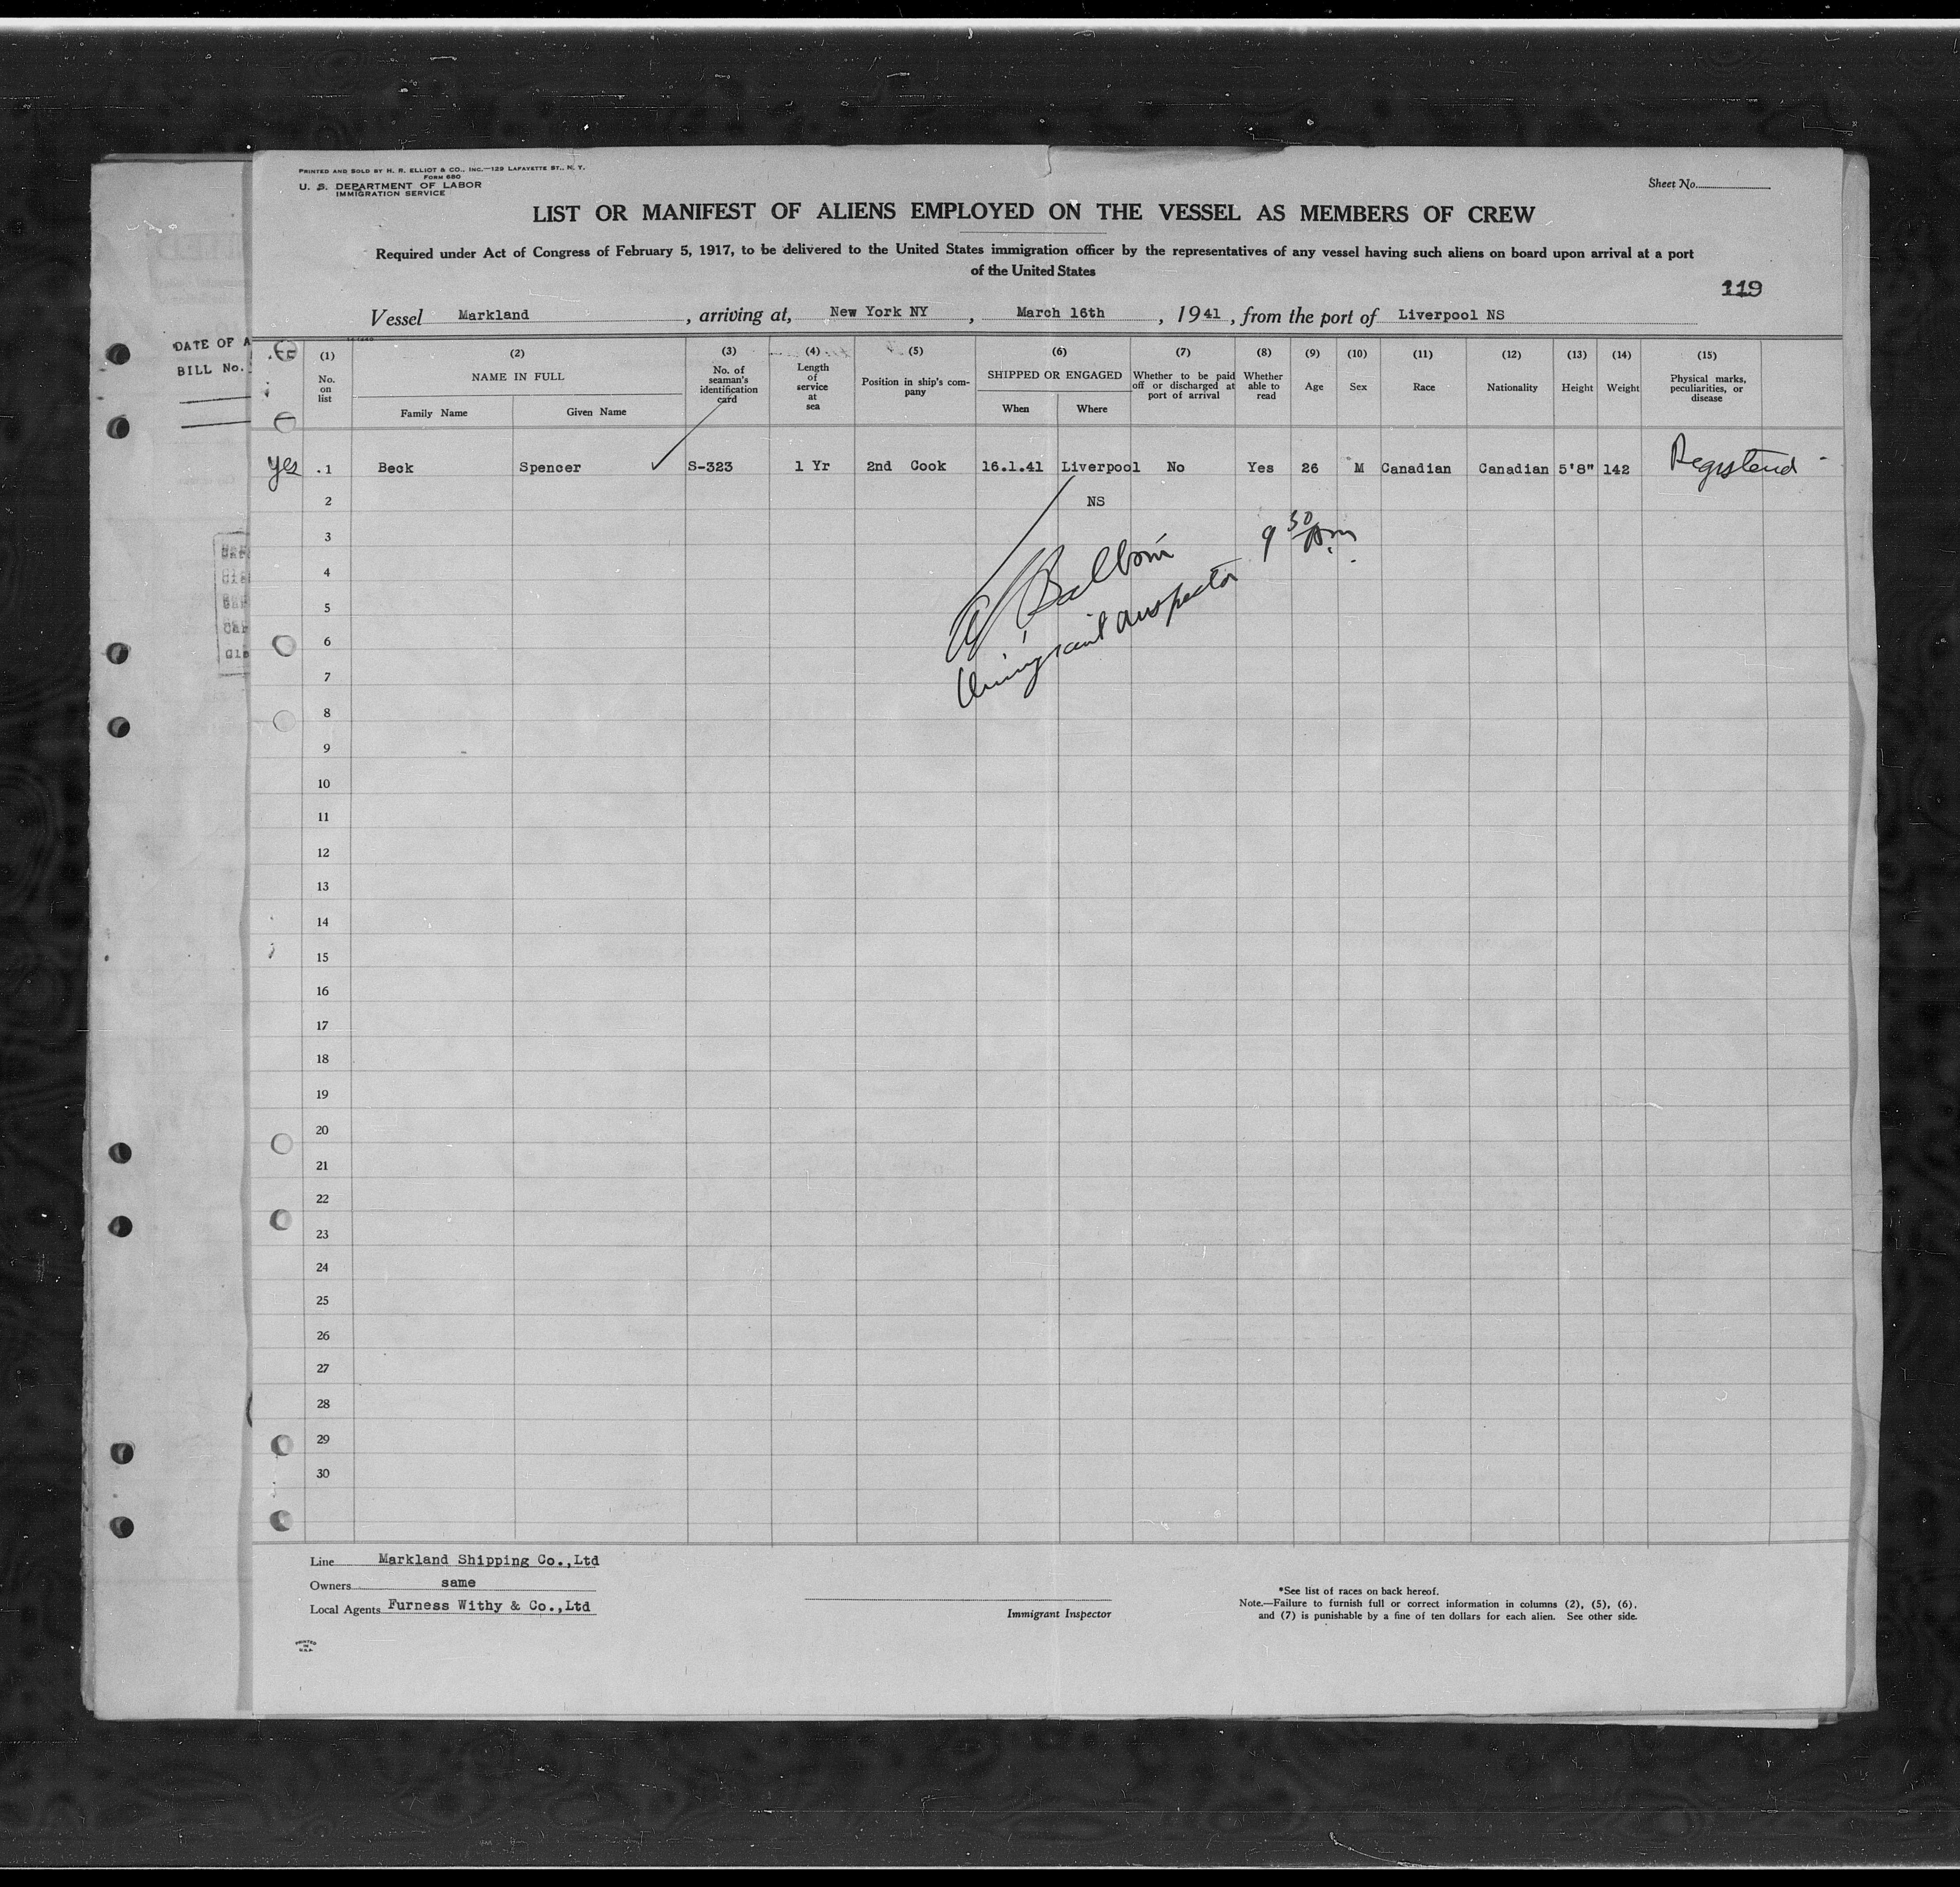 PRINTED AND SOLD BY H. R. ELLIOT & CO., INC.—129 LAFAYETTE ST., N. Y.
FORM 680
U. S. DEPARTMENT OF LABOR
IMMIGRATION SERVICE
Sheet No.
LIST OR MANIFEST OF ALIENS EMPLOYED ON THE VESSEL AS MEMBERS OF CREW
Required under Act of Congress of February 5, 1917, to be delivered to the United States immigration officer by the representatives of any vessel having such aliens on board upon arrival at a port
of the United States
119
Vessel Markland, arriving at, New York NY, March 16th, 1941, from the port of Liverpool NS
DATE OF A
BILL No.
(1) No. on list
(2) NAME IN FULL Family Name Given Name
(3) No. of seaman's identification card
(4) Length of service at sea
(5) Position in ship's company
(6) SHIPPED OR ENGAGED When Where
(7) Whether to be paid off or discharged at port of arrival
(8) Whether able to read
(9) Age
(10) Sex
(11) Race
(12) Nationality
(13) Height
(14) Weight
(15) Physical marks, peculiarities, or disease
yes 1 Beck Spencer S-323 1 Yr 2nd Cook 16.1.41 Liverpool No Yes 26 M Canadian Canadian 5'8" 142 Registered
2 NS
3 9 30
4
5
6
7
8
9
10
11
12
13
14
15
16
17
18
19
20
21
22
23
24
25
26
27
28
29
30
Line Markland Shipping Co.,Ltd
Owners same
Local Agents Furness Withy & Co.,Ltd
Immigrant Inspector
*See list of races on back hereof.
Note.—Failure to furnish full or correct information in columns (2), (5), (6),
and (7) is punishable by a fine of ten dollars for each alien. See other side.
PRINTED
IN
U.S.A.